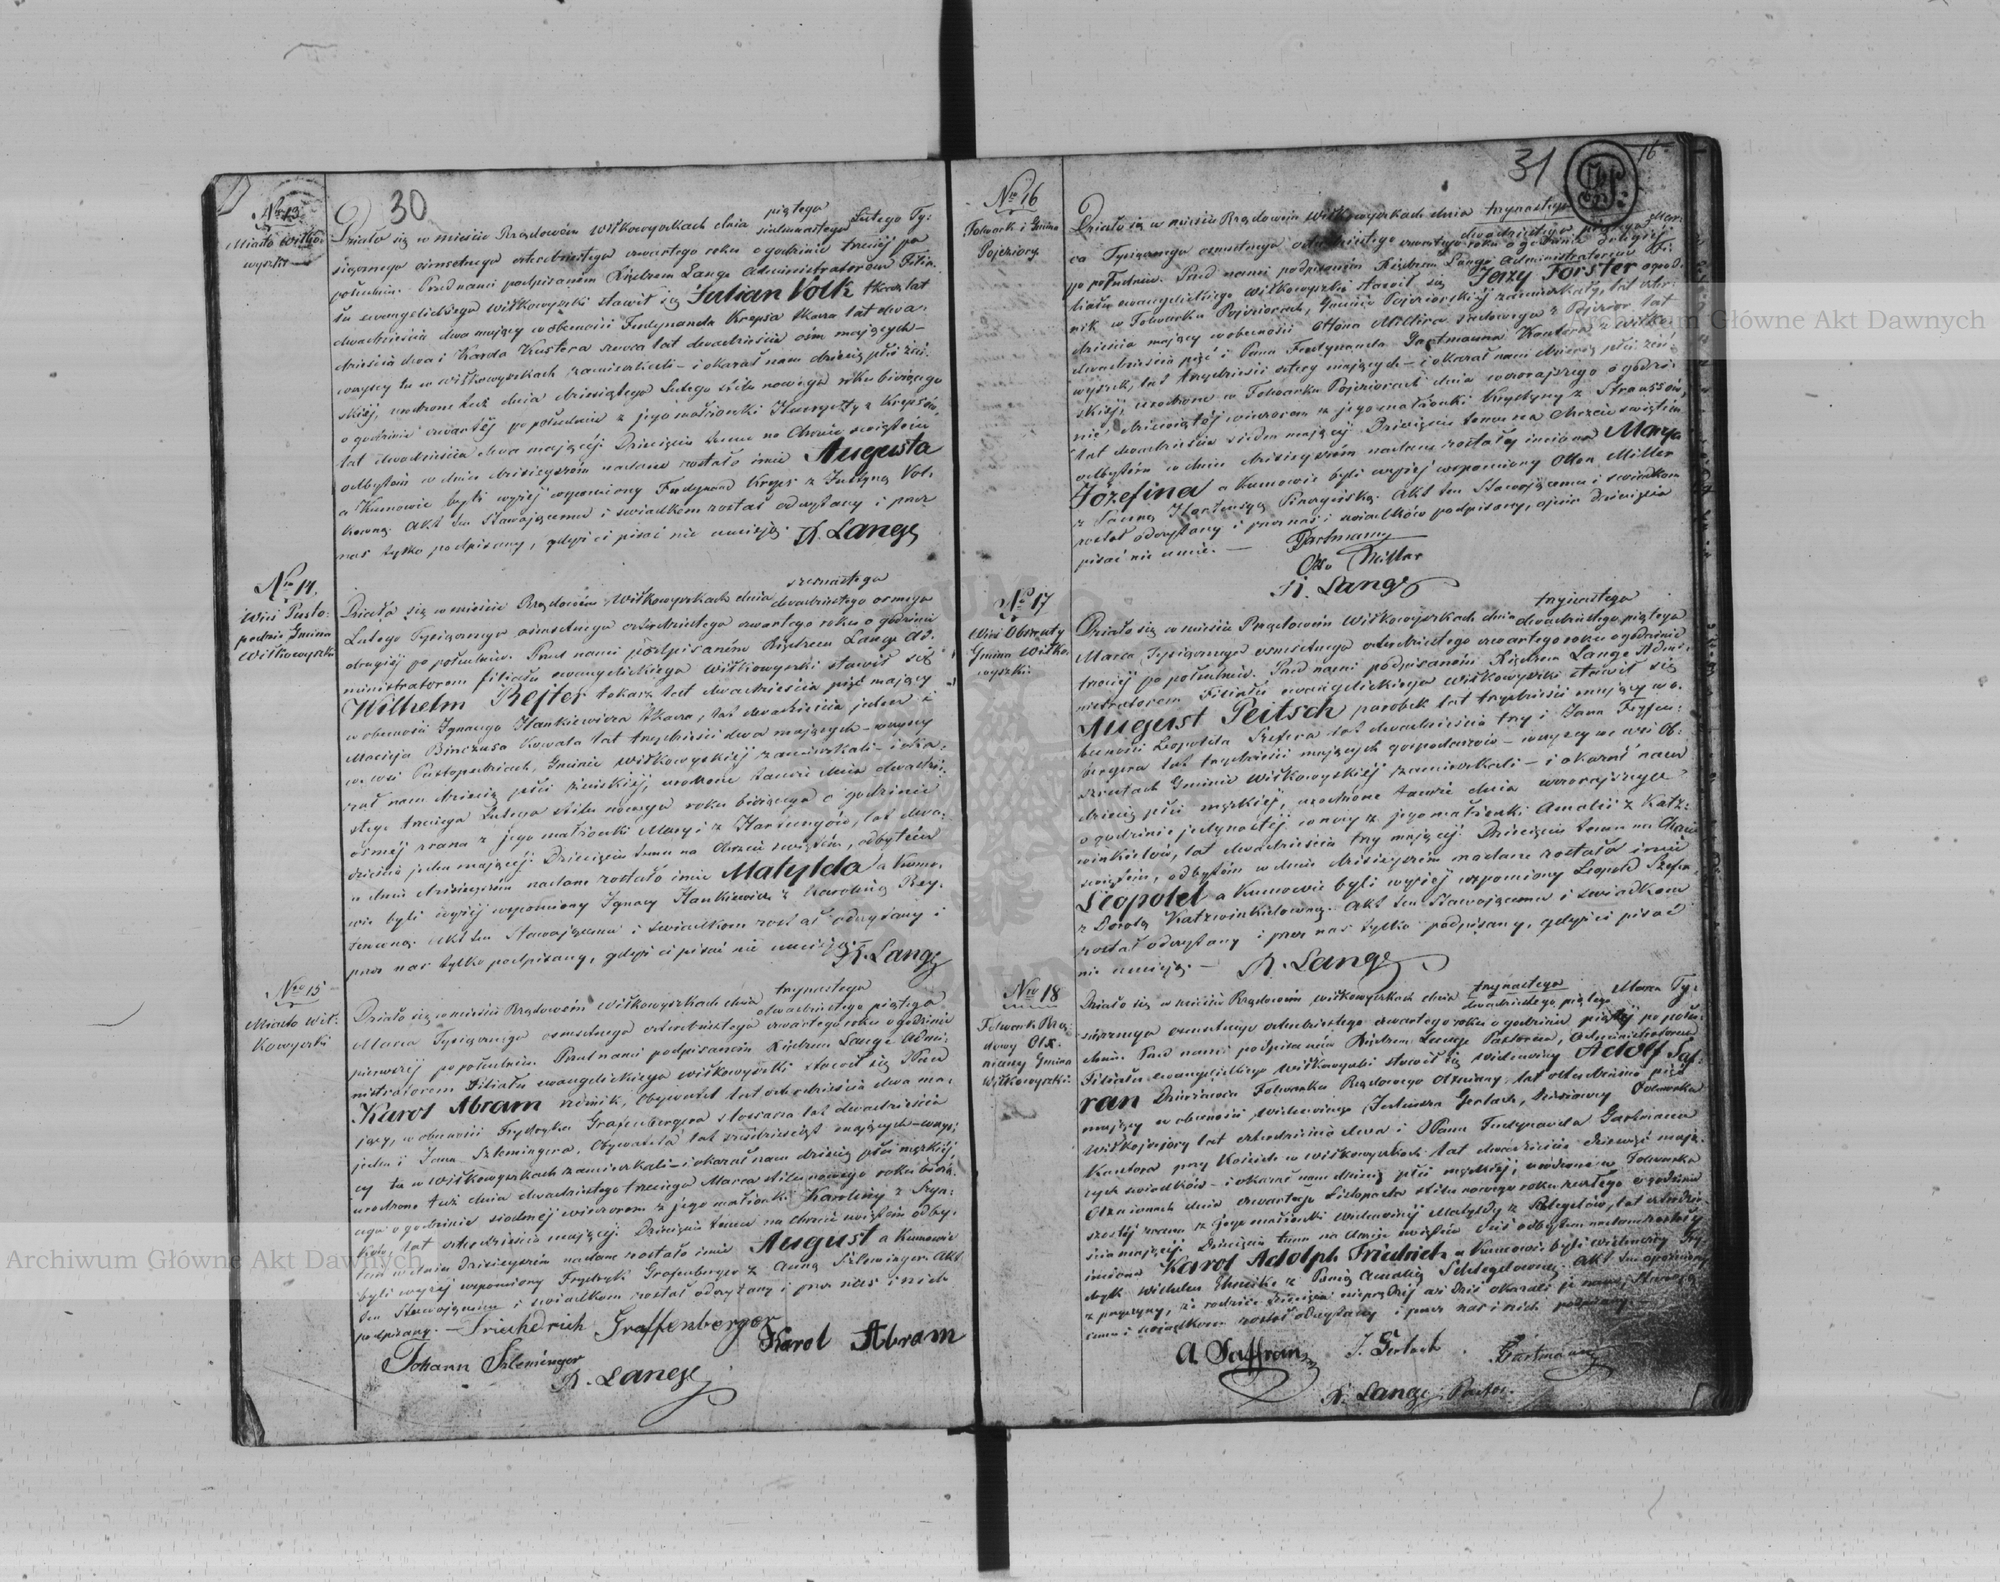 30
Nro 13
Miasto Wiłko-
wyszki
piątego
Działo się w mieście Rządowém Wiłkowyszkach dnia siedmnastego Lutego Ty-
siącznego ośmsetnego czterdziestego czwartego roku o godzinie trzeciéj po
południu. Przed nami podpisaném Xiędzem Lange Administratorem Filia-
łu ewangelickiego Wiłkowyszki stawił się Julian Volk tkacz lat
dwadzieścia dwa mający w obecności Ferdynanda Krepsa tkacza lat dwa-
dzieścia dwa i Karola Kustera szewca lat dwadzieścia ośm mających
wszyscy tu w Wiłkowyszkach zamieszkali – i okazał nam dziecię płci żeń-
skiéj, urodzone tuż dnia dziesiątego Lutego stilu nowego roku bieżącego
o godzinie czwartéj po południu z jego małżonki Henryetty z Krepsów,
lat dwadzieścia dwa mającéj. Dziecięciu temu na Chrzcie świętém
odbytém w dniu dzisiejszém nadane zostało imie Augusta
a Kumowie byli wyżéj wspomniony Ferdynand Kreps z Justyną Vol-
kowną. Akt ten Stawającemu i świadkom został odczytany i przez
nas tylko podpisany, gdyż ci pisać nie umieją. K. Lange
Nro 14.
Wieś Pusto-
pedzie Gmina
Wiłkowyszki
szesnastego
Działo się w mieście Rządowém Wiłkowyszkach dnia dwudziestego osmego
Lutego Tysiącznego ośmsetnego czterdziestego czwartego roku o godzinie
drugiéj po południu. Przed nami podpisaném Xiędzem Lange Ad-
ministratorem filiału ewangelickiego Wiłkowyszki stawił się
Wilhelm Rejter tokarz lat dwadzieścia pięć mający
w obecności Ignacego Hankiewicza tkacza, lat dwadzieścia jeden i
Macieja Kowala lat trzydzieści dwa mających – wszyscy
we wsi Pustopedziach, Gminie Wiłkowyskiéj zamieszkali – i oka-
zał nam dziecię płci żeńskiéj, urodzone tamże dnia dwudzie-
stego trzeciego Lutego stilu nowego roku bieżącego o godzinie
ósméj zrana z jego małżonki Maryi z Hartungów, lat dwa-
dzieścia jeden mającéj. Dziecięciu temu na Chrzcie świętém, odbytém
w dniu dzisiejszém nadane zostało imie Matylda a Kumo-
wie byli wyżéj wspomniony Ignacy Hankiewicz z Karoliną Rey-
terową. Akt ten Stawającemu i świadkom został odczytany i
przez nas tylko podpisany, gdyż ci pisać nie umieją. K. Lange
Nro 15
Miasto Wił-
kowyszki
trzynastego
Działo się w mieście Rządowém Wiłkowyszkach dnia dwudziestego piątego
Marca Tysiącznego osmsetnego czterdziestego czwartego roku o godzinie
pierwszéj po południu. Przed nami podpisaném Xiędzem Lange Admi-
nistratorem Filiału ewangelickiego Wiłkowyszki stawił się Pan
Karol Abram rolnik, Obywatel lat czterdzieści dwa ma-
jący, w obecności Frydryka Grafenbergera stolarza lat dwadzieścia
jeden i Jana Szlemingera, Obywatela lat sześćdziesiąt mających – wszy-
scy tu w Wiłkowyszkach zamieszkali – i okazał nam dziecię płci męzkiéj,
urodzone tuż dnia dwudziestego trzeciego Marca stilu nowego roku bieżą-
cego o godzinie siódméj wieczorem z jego małżonki Karoliny z
lat czterdzieści mającéj. Dziecięciu temu na chrzcie świętém odby-
tém w dniu dzisiejszém nadane zostało imie August a Kumowie
byli wyżéj wspomniony Frydryk Grafenberger z Anną Szleminger. Akt
ten Stawającemu i świadkom został odczytany i przez nas i nich
podpisany. – Friehdrich Graffenberger
Karol Abram
Johann Szleminger
K. Lange
31
16
Nro 16
Folwark i Gmina
Pojeziory
Działo się w mieście Rządowém Wiłkowyszkach dnia trzynastego
dwudziestego piątego Mar-
ca Tysiącznego osmsetnego czterdziestego czwartego roku o godzinie drugiéj
po południu. Przed nami podpisaném Xiędzem Lange Administratorem Fi-
liału ewangelickiego Wiłkowyszki stawił się Jerzy Forster ogrod-
nik w Folwarku Pojeziorach, Gminie Pojeziorskiéj zamieszkały, lat czter-
dzieścia mający w obecności Ottona Millera z Pojezior lat
dwadzieścia pięć i Pana Ferdynanda Gartmanna Kantora z Wiłko-
wyszek, lat trzydzieści cztery mających – i okazał nam dziecię płci żeń-
skiéj, urodzone w Folwarku Pojeziorach dnia wczorajszego o godzi-
nie dziewiątéj wieczorem z jego małżonki Krystyny z Straussów,
lat dwadzieścia siedm mającéj. Dziecięciu temu na Chrzcie świętém
odbytém w dniu dzisiejszém nadane zostały imiona Marya
Józefina a Kumowie byli wyżéj wspomniony Otton Miller
z Panną Hortensyą Piaszczyńską. Akt ten Stawającemu i świadkom
został odczytany i przez nas i świadków podpisany, ojciec Dziecięcia
pisać nie umie. – Gartmann
Otto Miller
K. Lange
Nro 17
Wieś Obszruty
Gmina Wiłko-
wyszki
trzynastego
Działo się w mieście Rządowém Wiłkowyszkach dnia dwudziestego piątego
Marca Tysiącznego osmsetnego czterdziestego czwartego roku o godzinie
trzeciéj po południu. Przed nami podpisaném Xiędzem Lange Admi-
nistratorem Filiału ewangelickiego Wiłkowyszki stawił się
August Peitsch parobek lat trzydzieści mający w o-
becności Leopolda Szefera lat dwadzieścia trzy i Jana
lat trzydzieści mających gospodarzów – wszyscy we wsi Ob-
szrutach Gminie Wiłkowyskiéj zamieszkali – i okazał nam
dziecię płci męzkiéj, urodzone tamże dnia wczorajszego
o godzinie jedynastéj w nocy z jego małżonki Amalii z Katz-
winkelów, lat dwadzieścia trzy mającéj. Dziecięciu temu na Chrzcie
świętém, odbytém w dniu dzisiejszém nadane zostało imie
Leopold a Kumowie byli wyżéj wspomniony Leopold Szefer
z Dorotą Katzwinkelowną. Akt ten Stawającemu i świadkom
został odczytany i przez nas tylko podpisany, gdyż ci pisać
nie umieją. – K. Lange
Nro 18
Folwark Rzą-
dowy Olx-
niany Gmina
Wiłkowyszki
trzynastego
Działo się w mieście Rządowém Wiłkowyszkach dnia dwudziestego piątego Marca Ty-
siącznego osmsetnego czterdziestego czwartego roku o godzinie piątéj po połu-
dniu. Przed nami podpisaném Xiędzem Lange Pastorem, Administratorem
Filiału ewangelickiego Wiłkowyszki stawił się Wielmożny Adolf Saf-
ran Dzierżawca Folwarku Rządowego Olxniany lat czterdzieści pięć
mający w obecności Wielmożnego Juliusza Gerlach, Dzierżawcy Folwarku
Wiłkojeziory lat czterdzieści dwa i Pana Ferdynanda Gartmanna
Kantora przy Kościele w Wiłkowyszkach lat dwadzieścia dziewięć mają-
cych świadków – i okazał nam dziecię płci męzkiéj, urodzone w Folwarku
Olxnianach dnia czwartego Listopada stilu nowego roku zeszłego o godzinie
szostéj zrana z jego małżonki Wielmożnéj Matyldy z Schlegelów, lat
mającéj. Dziecięciu temu na Chrzcie świętém dziś odbytém nadane zostały
imiona Karol Adolph Friedrich a Kumowie byli Wielmożny Fry-
dryk Wilhelm z Panią Amalią Schlegelowną. Akt ten opóźniony
z przyczyny, że rodzice Dziecięcia nieprędzéj aż dziś okazali je nam. Stawają-
cemu i świadkom został odczytany i przez nas i nich podpisany. –
A. Saffran J. Gerlach Gartmann
K. Lange Pastor.
Archiwum Główne Akt Dawnych
Archiwum Główne Akt Dawnych